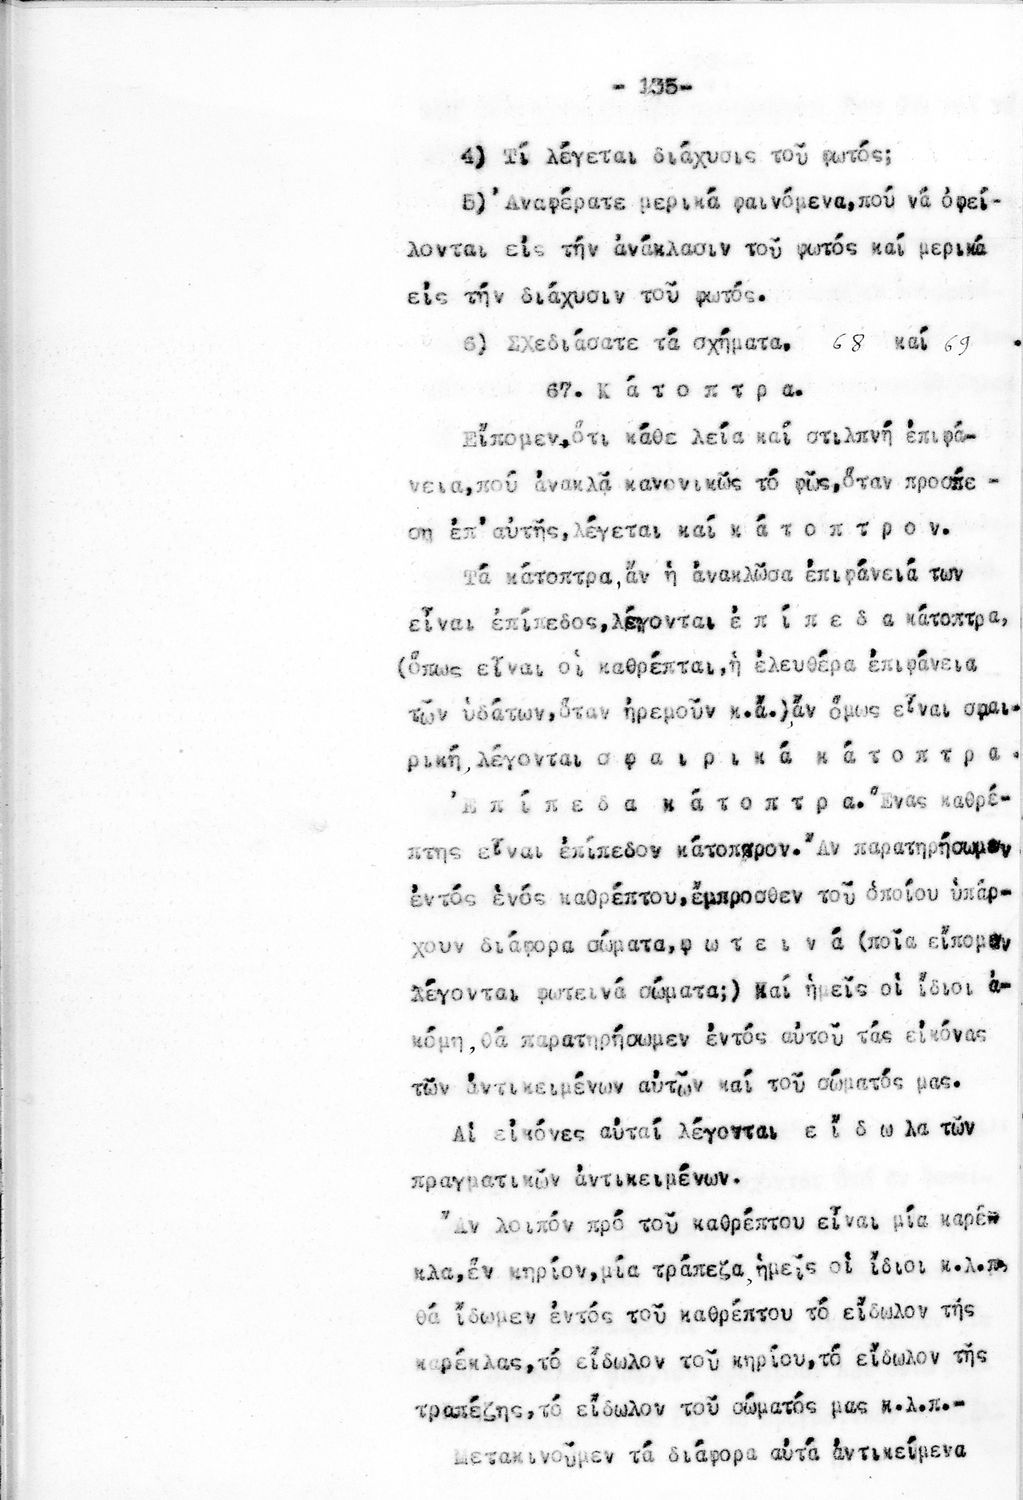 - 135-
4) Τί λέγεται διάχυσις τοῦ φωτός;
5)'Αναφέρατε μερικά φαινόμενα,πού νά ὀφεί-
λονται εἰς τήν ἀνάκλασιν τοῦ φωτός καί μερικά
εἰς τήν διάχυσιν τοῦ φωτός.
6) Σχεδιάσατε τά σχήματα. 68 καί 69 .
67. Κ ά τ ο π τ ρ α.
Εἴπομεν,ὅτι κάθε λεία καί στιλπνή ἐπιφά-
νεια,πού ἀνακλᾷ κανονικῶς τό φῶς,ὅταν προσπέ -
ση ἐπ'αὐτῆς,λέγεται καί κ ά τ ο π τ ρ ο ν.
Τά κάτοπτρα,ἄν ἡ ἀνακλῶσα ἐπιφάνειά των
εἶναι ἐπίπεδος,λέγονται ἐ π ί π ε δ α κάτοπτρα,
(ὅπως εἶναι οἱ καθρέπται,ἡ ἐλευθέρα ἐπιφάνεια
τῶν ὑδάτων,ὅταν ἠρεμοῦν κ.ἄ.)ἄν ὅμως εἶναι σφαι-
ρική,λέγονται σ φ α ι ρ ι κ ά κ ά τ ο π τ ρ α.
'Ε π ί π ε δ α κ ά τ ο π τ ρ α. Ἕνας καθρέ-
πτης εἶναι ἐπίπεδον κάτοπτρον. Ἄν παρατηρήσωμεν
ἐντός ἑνός καθρέπτου,ἔμπροσθεν τοῦ ὁποίου ὑπάρ-
χουν διάφορα σώματα,φ ω τ ε ι ν ά (ποῖα εἴπομεν
λέγονται φωτεινά σώματα;) καί ἡμεῖς οἱ ἴδιοι ἀ-
κόμη,θά παρατηρήσωμεν ἐντός αὐτοῦ τάς εἰκόνας
τῶν ἀντικειμένων αὐτῶν καί τοῦ σώματός μας.
Αἱ εἰκόνες αὐταί λέγονται ε ἴ δ ω λα τῶν
πραγματικῶν ἀντικειμένων.
Ἄν λοιπόν πρό τοῦ καθρέπτου εἶναι μία καρέ-
κλα,ἕν κηρίον,μία τράπεζα,ἡμεῖς οἱ ἴδιοι κ.λ.π,
θά ἴδωμεν ἐντός τοῦ καθρέπτου τό εἴδωλον τῆς
καρέκλας,τό εἴδωλον τοῦ κηρίου,τό εἴδωλον τῆς
τραπέζης,τό εἴδωλον τοῦ σώματός μας κ.λ.π.-
Μετακινοῦμεν τά διάφορα αὐτά ἀντικείμενα